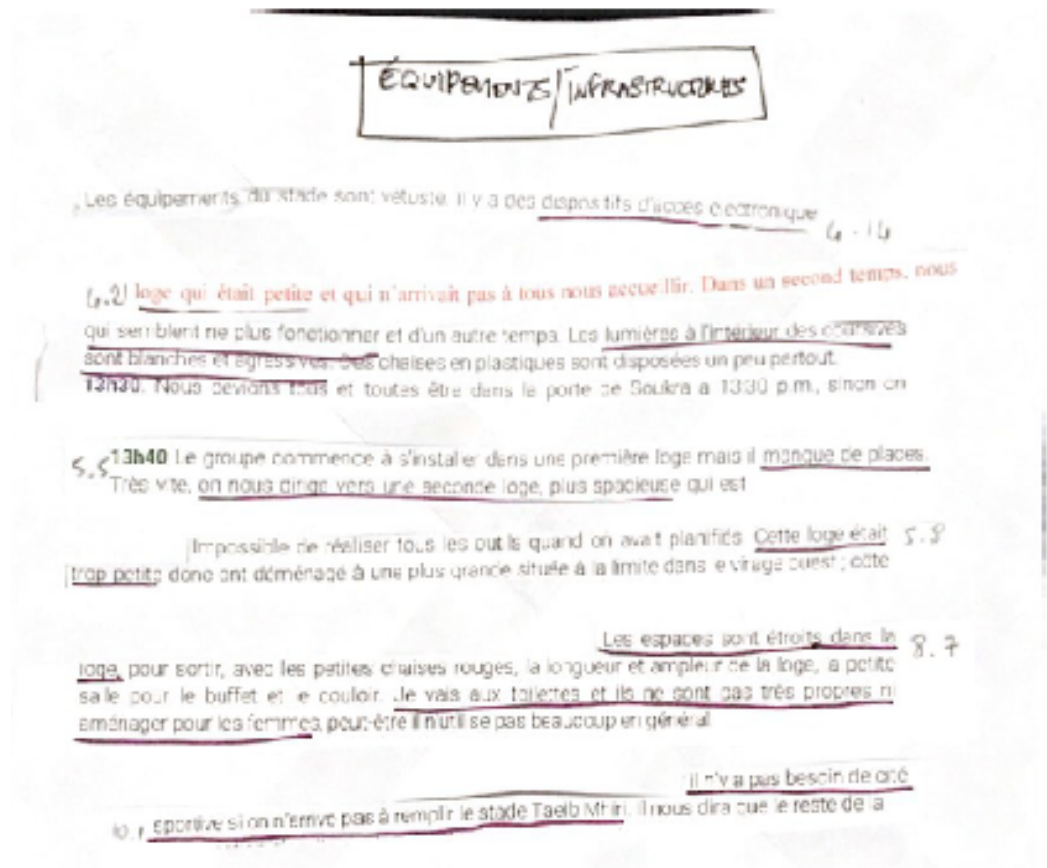 ÉQUIPEMENTS/INFRASTRUCTURES
Les équipements du stade sont vétuste. Il y a des dispositifs d'accès électronique
4.14
4.2 loge qui était petite et qui n'arrivait pas à tous nous accueillir. Dans un second temps, nous
qui semblent ne plus fonctionner et d'un autre temps. Les lumières à l'intérieur des coursives
sont blanches et agressives. Des chaises en plastiques sont disposées un peu partout.
13h30. Nous devions tous et toutes être dans la porte de Soukra a 13:30 p.m., sinon on
5.5 13h40 Le groupe commence à s'installer dans une première loge mais il manque de places.
Très vite, on nous dirige vers une seconde loge, plus spacieuse qui est
Impossible de réaliser tous les outils quand on avait planifiés. Cette loge était 5.8
trop petite donc ont déménagé à une plus grande située à la limite dans le virage ouest ; cette
Les espaces sont étroits dans la 8.7
loge, pour sortir, avec les petites chaises rouges, la longueur et ampleur de la loge, a petite
salle pour le buffet et le couloir. Je vais aux toilettes et ils ne sont pas très propres ni
aménager pour les femmes, peut-être il n'utilise pas beaucoup en général
il n'y a pas besoin de cité
10. sportive si on n'arrive pas à remplir le stade Taeib Mhiri. Il nous dira que le reste de la